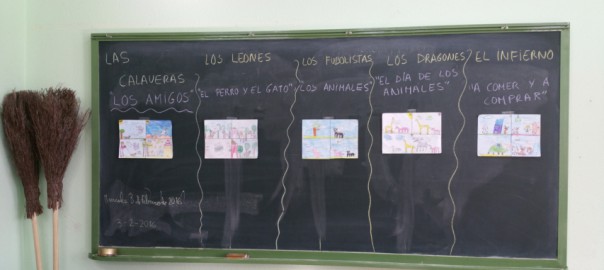 LAS
CALAVERAS
"LOS AMIGOS"
LOS LEONES
"EL PERRO Y EL GATO"
LOS FUBOLISTAS
"LOS ANIMALES"
LOS DRAGONES
"EL DÍA DE LOS
ANIMALES"
EL INFIERNO
"A COMER Y A
COMPRAR"